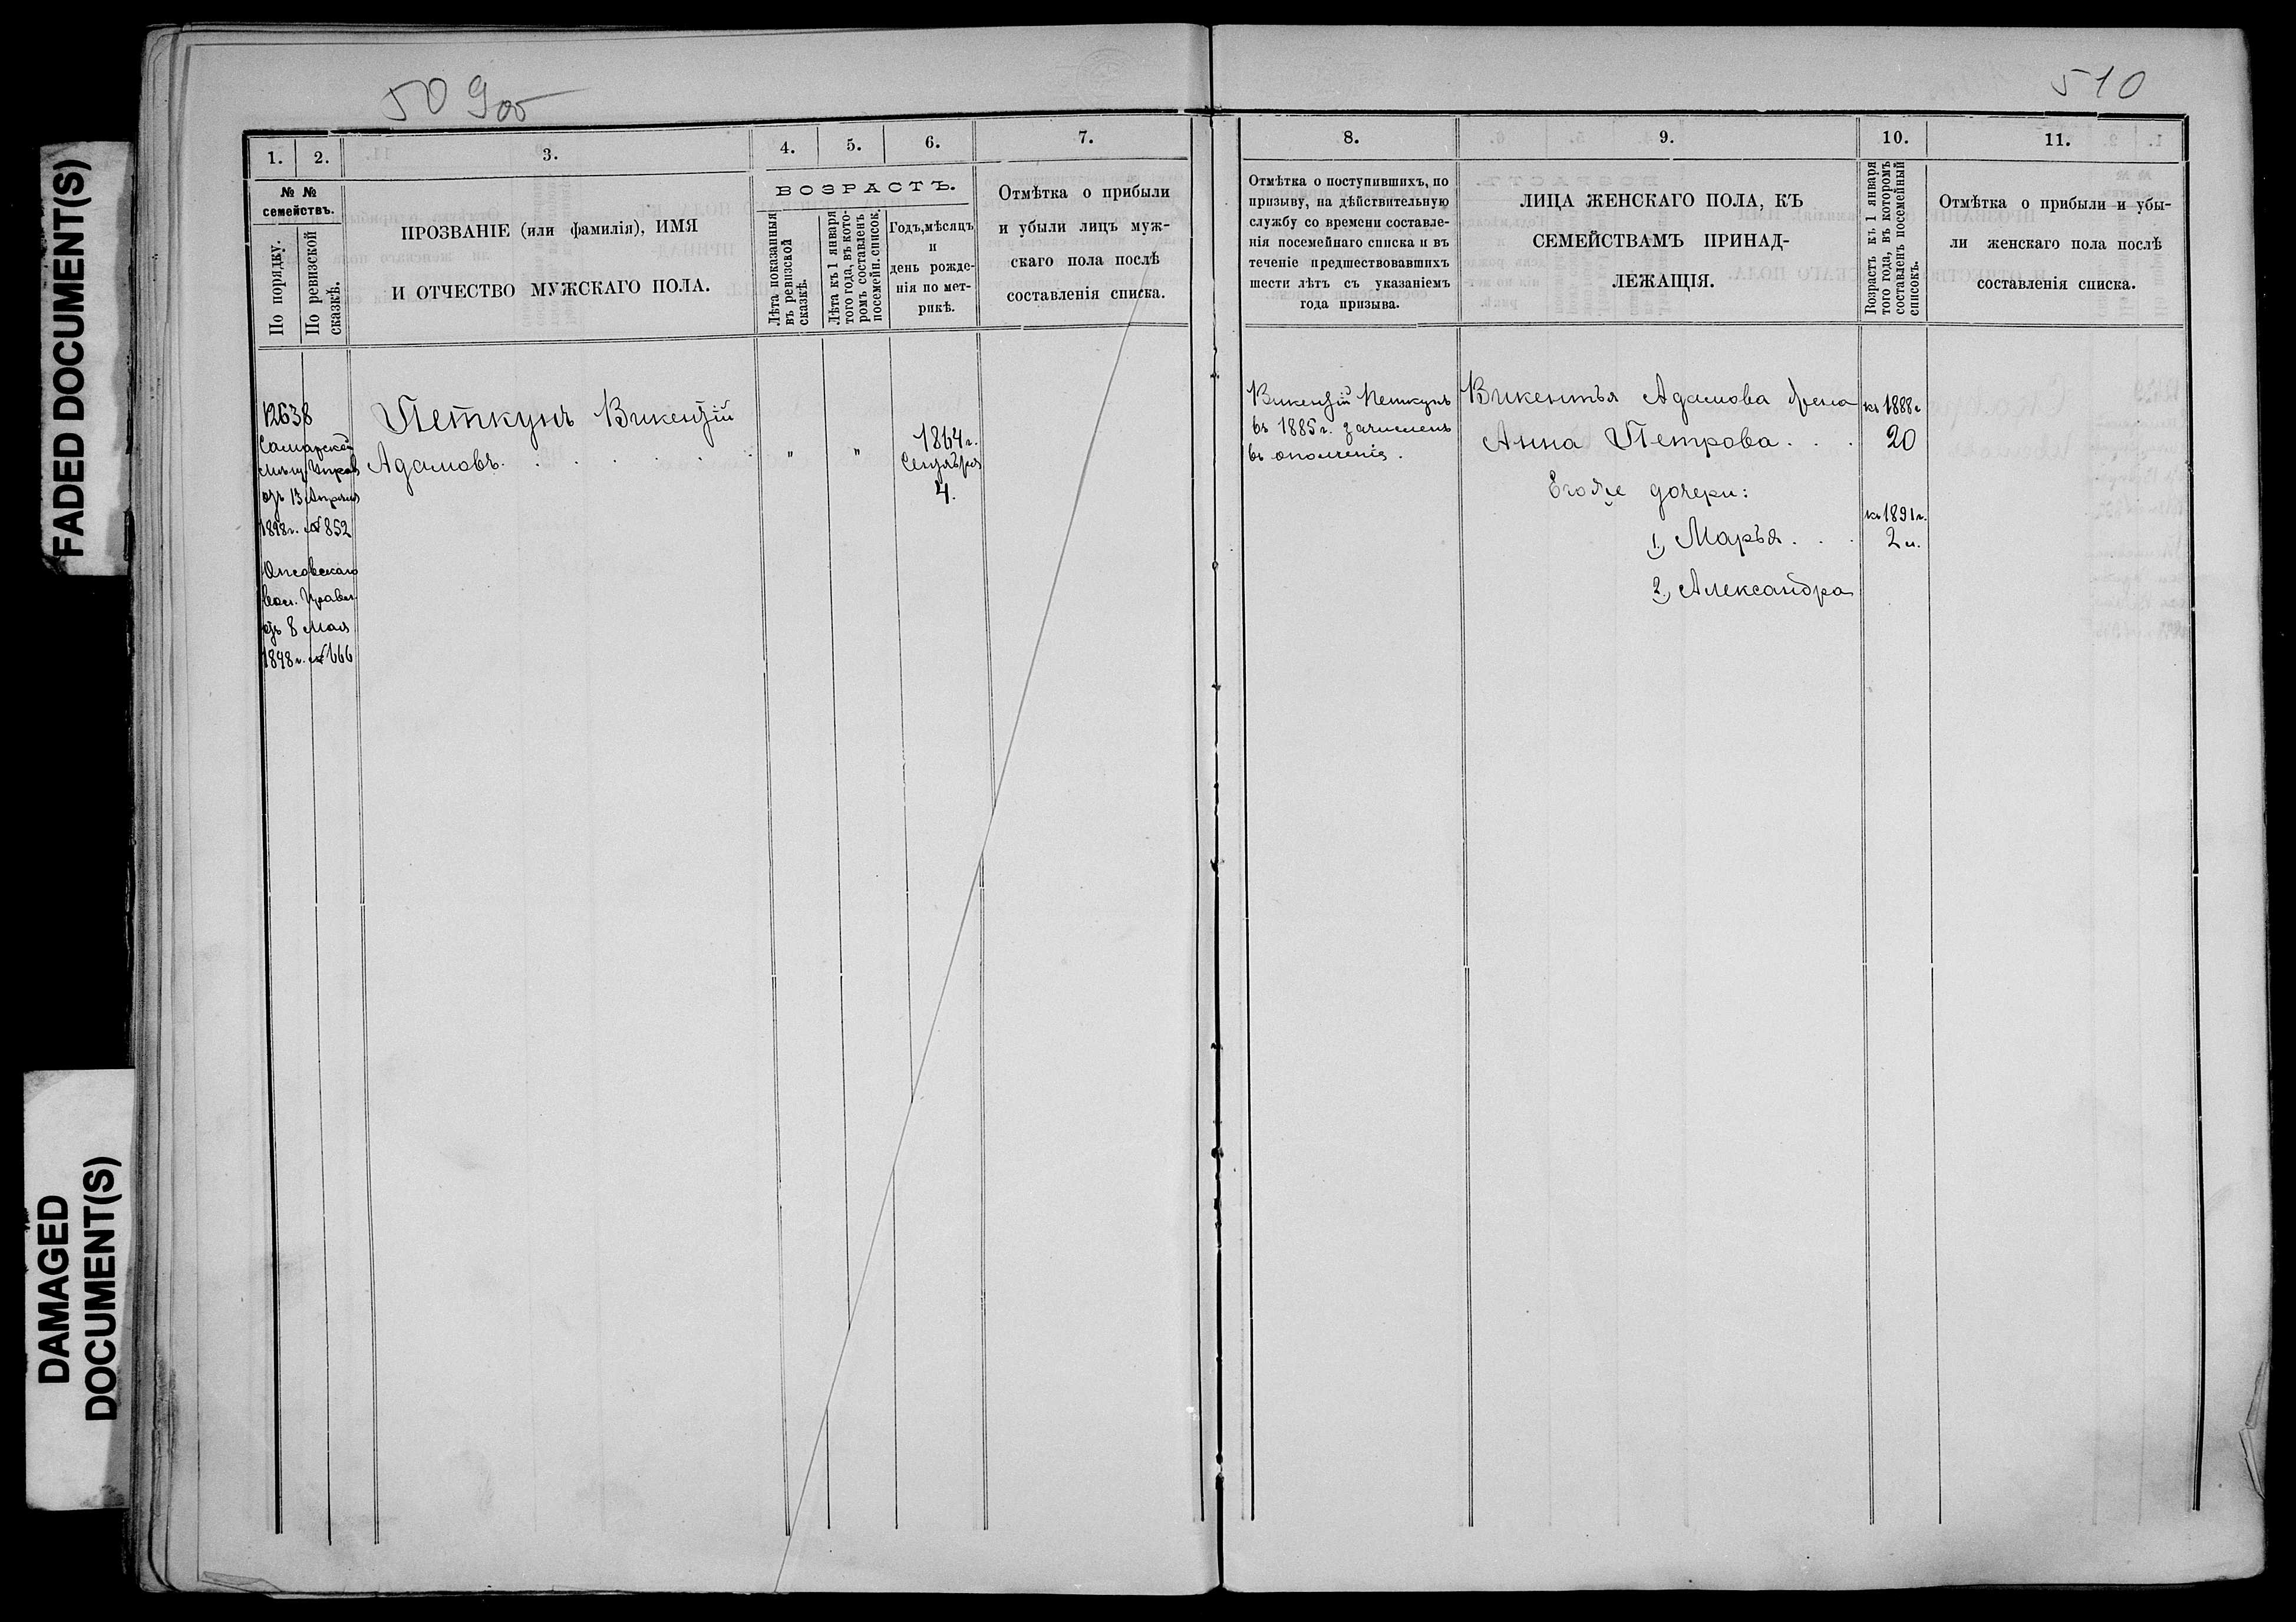 FADED DOCUMENT(S)
DAMAGED
DOCUMENT(S)
509об
1.
2.
3.
4.
5.
6.
7.
№ №
семействъ.
По порядку.
По ревизской
сказкѣ.
ПРОЗВАНІЕ (или фамилія), ИМЯ
И ОТЧЕСТВО МУЖСКАГО ПОЛА.
ВОЗРАСТЪ.
Лѣта показанныя
въ ревизской
сказкѣ.
Лѣта къ 1 января
того года, въ кото-
ромъ составленъ
посемейн. список.
Годъ, мѣсяцъ
и
день рожде-
нія по мет-
рикѣ.
Отмѣтка о прибыли
и убыли лицъ муж-
скаго пола послѣ
составленія списка.
12638
Самарской
мѣщ. Управ
отъ 13 Апрѣля
1898г. № 852
вол. Правл.
отъ 8 Мая
1898г. № 666
Петкунъ Викентій
Адамовъ . . . . . .
"
"
1864г.
Сентября
4.
510
8.
9.
10.
11.
Отмѣтка о поступившихъ, по
призыву, на дѣйствительную
службу со времени составле-
нія посемейнаго списка и въ
теченіе предшествовавшихъ
шести лѣтъ съ указаніемъ
года призыва.
ЛИЦА ЖЕНСКАГО ПОЛА, КЪ
СЕМЕЙСТВАМЪ ПРИНАД-
ЛЕЖАЩІЯ.
Возрастъ къ 1 января
того года, въ которомъ
составленъ посемейный
списокъ.
Отмѣтка о прибыли и убы-
ли женскаго пола послѣ
составленія списка.
Викентій Петкунъ
въ 1885г. зачисленъ
въ ополченіе.
Викентья Адамова жена
Анна Петрова . . .
Его же дочери:
1) Марья . . .
2) Александра
къ 1888г
20
къ 1891г.
2 м.